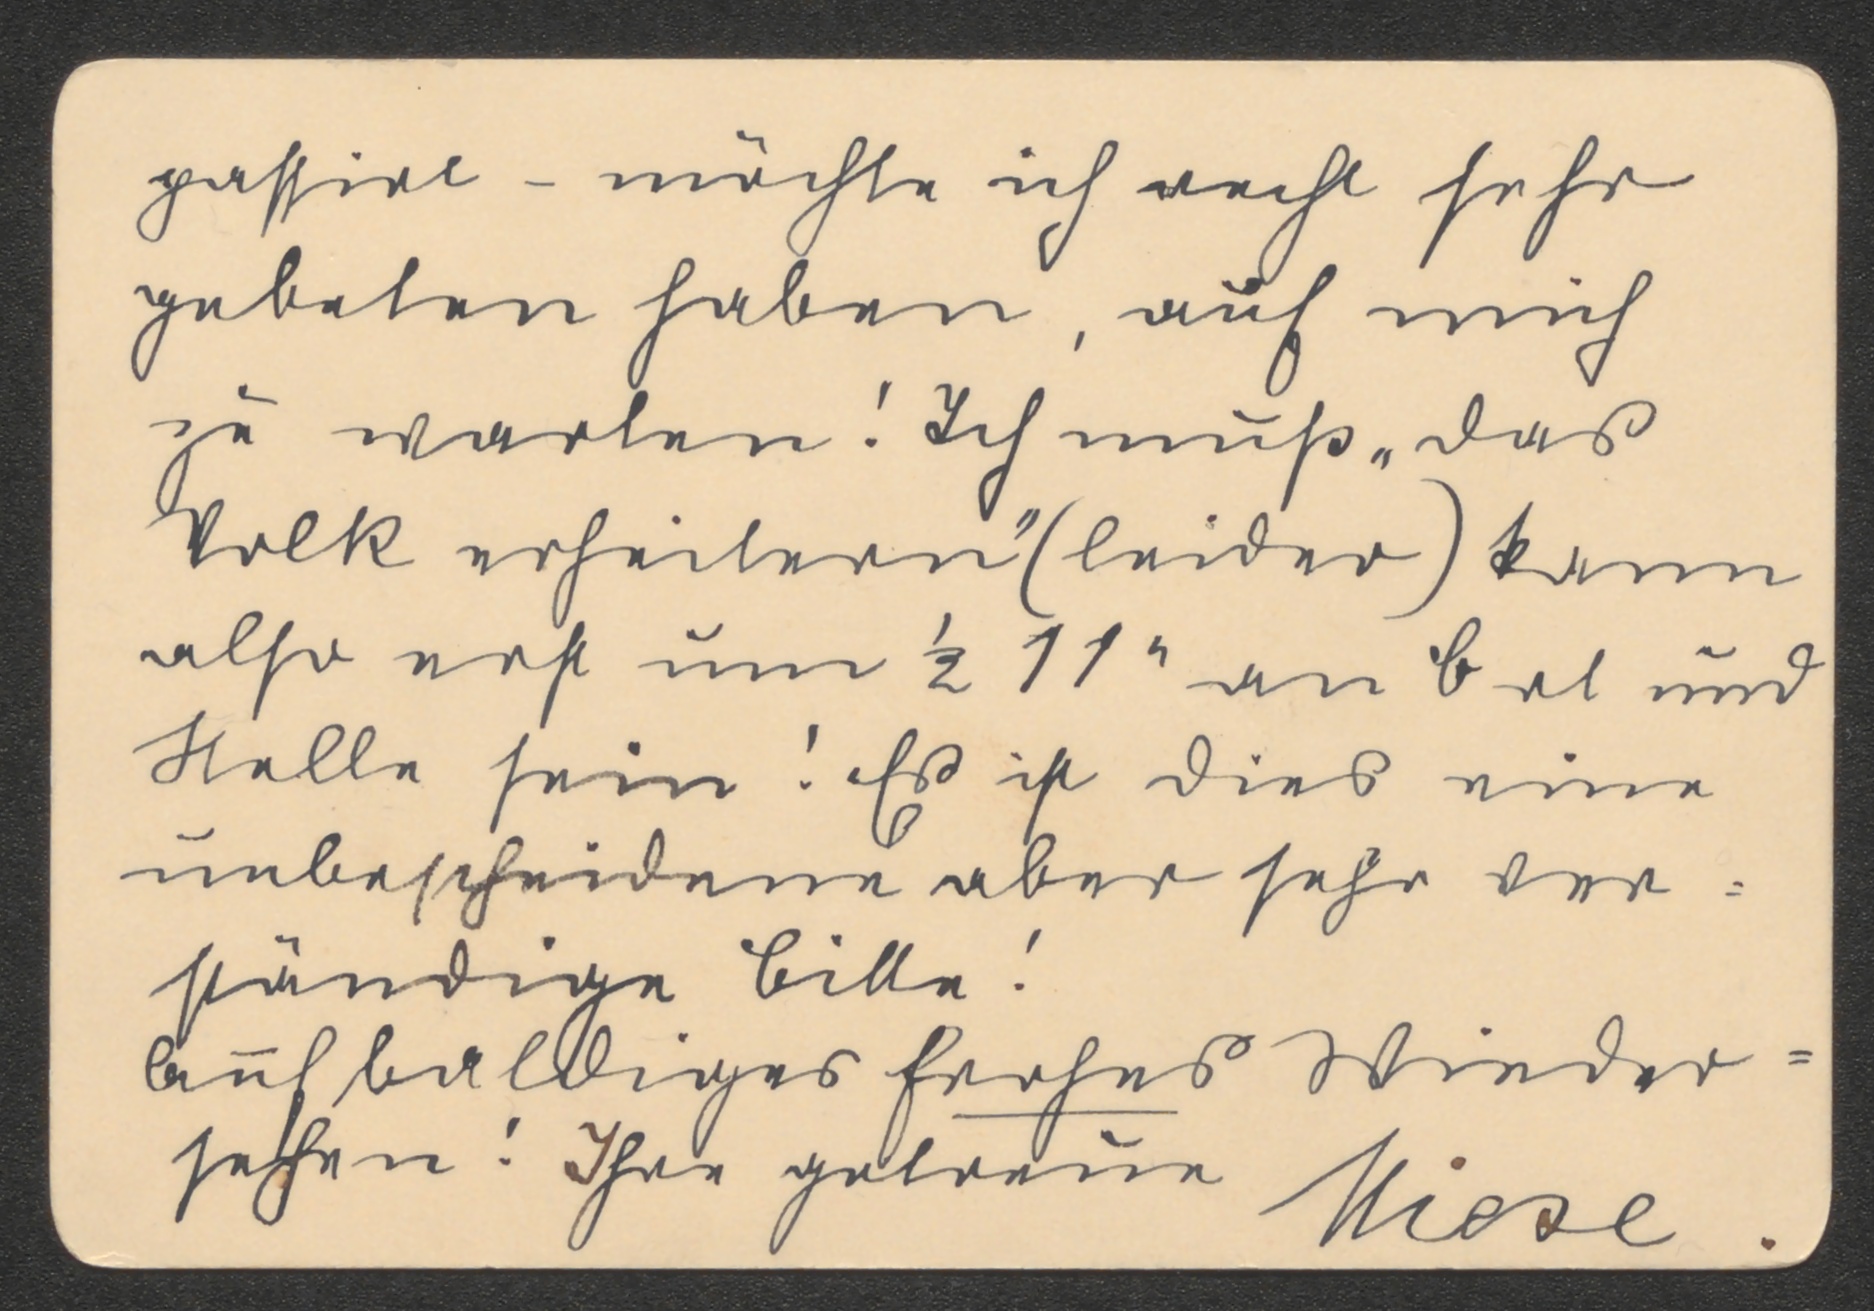 passirt – möchte ich recht sehr
gebeten haben, auf mich
zu warten! Ich muß „das
Volk erheitern" (leider) kann
also erst um ½ 11" an Ort und
Stelle sein! Es ist dies eine
unbescheidene aber sehr ver=
ständige Bitte!
Auf baldiges frohes Wieder=
sehen! Ihre getreue
Niese.